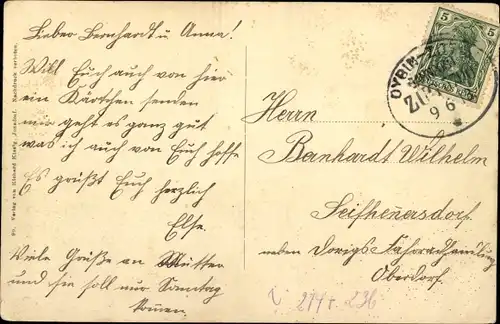 Lieber Bernhardt u. Anna!
Will Euch auch von hier
ein Kärtchen senden
mir geht es ganz gut
was ich auch von Euch hoffe
Es grüßt Euch herzlich
Else.
Viele Grüße an Mutter
und sie soll nur Sonntag
kommen
Verlag von Nachdruck verboten.
5 5
OYBIN-
9 6
Herrn
Bernhardt Wilhelm
Seifhennersdorf.
neben Dorigs Fahrradhandlung
Oberdorf.